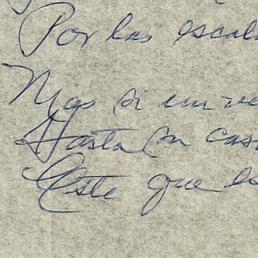 Por las escal
Mas si un ve
Hasta su cas
Este que es